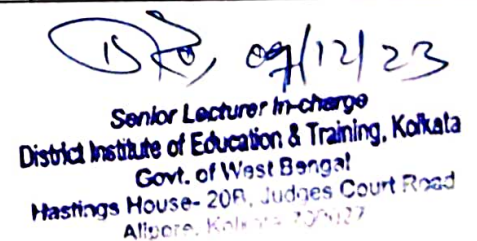 09/12/23
Senior Lecturer In-charge
District Institute of Education & Training, Kolkata
Govt. of West Bengal
Hastings House- 20R, Judges Court Road
Alipore, Kolkata 700027